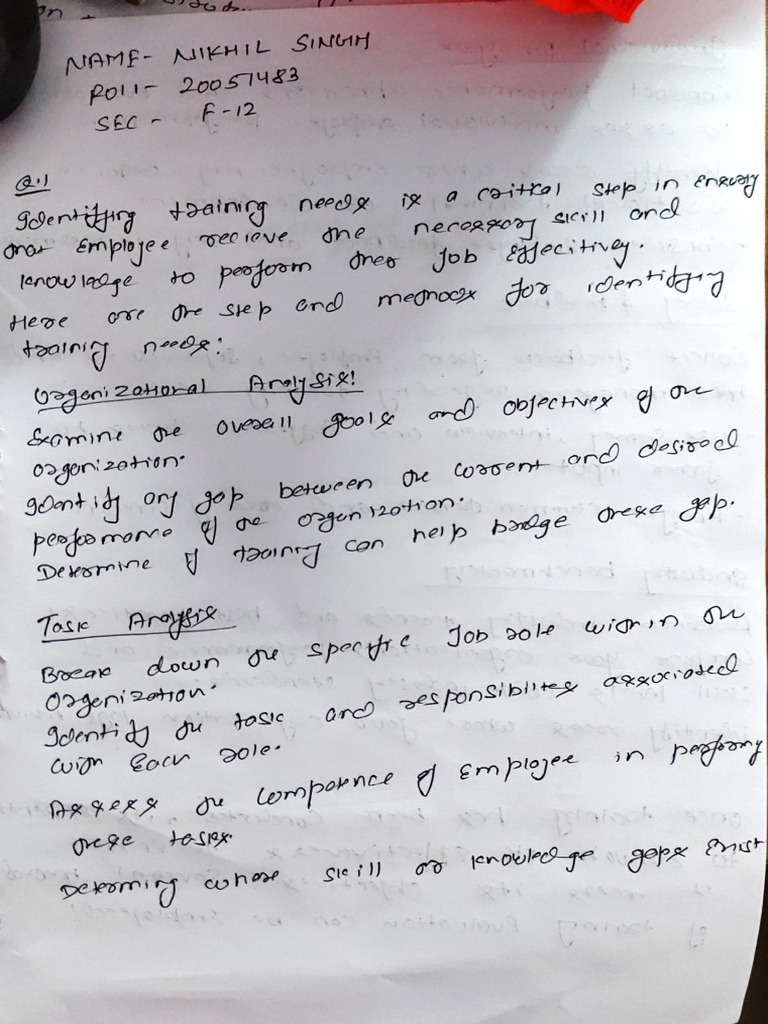 NAME- NIKHIL SINGH
Roll- 20051483
SEC - F-12
Q.1
Identifying training needs is a critical step in ensuring
that Employee recieve the necessary skill and
knowledge to perform their job effectively.
Here are the step and methods for identifying
training needs:
Organizational Analysis:
Examine the overall goals and objectives of the
organization.
Identify any gap between the current and desired
performance of the organization.
Determine if training can help bridge these gap.
Task Analysis
Break down the specific Job role within the
Organization.
Identify the task and responsibilites associated
with Each role.
Assess the competence of Employee in performing
these tasks.
Determing where skill or knowledge gaps Exist